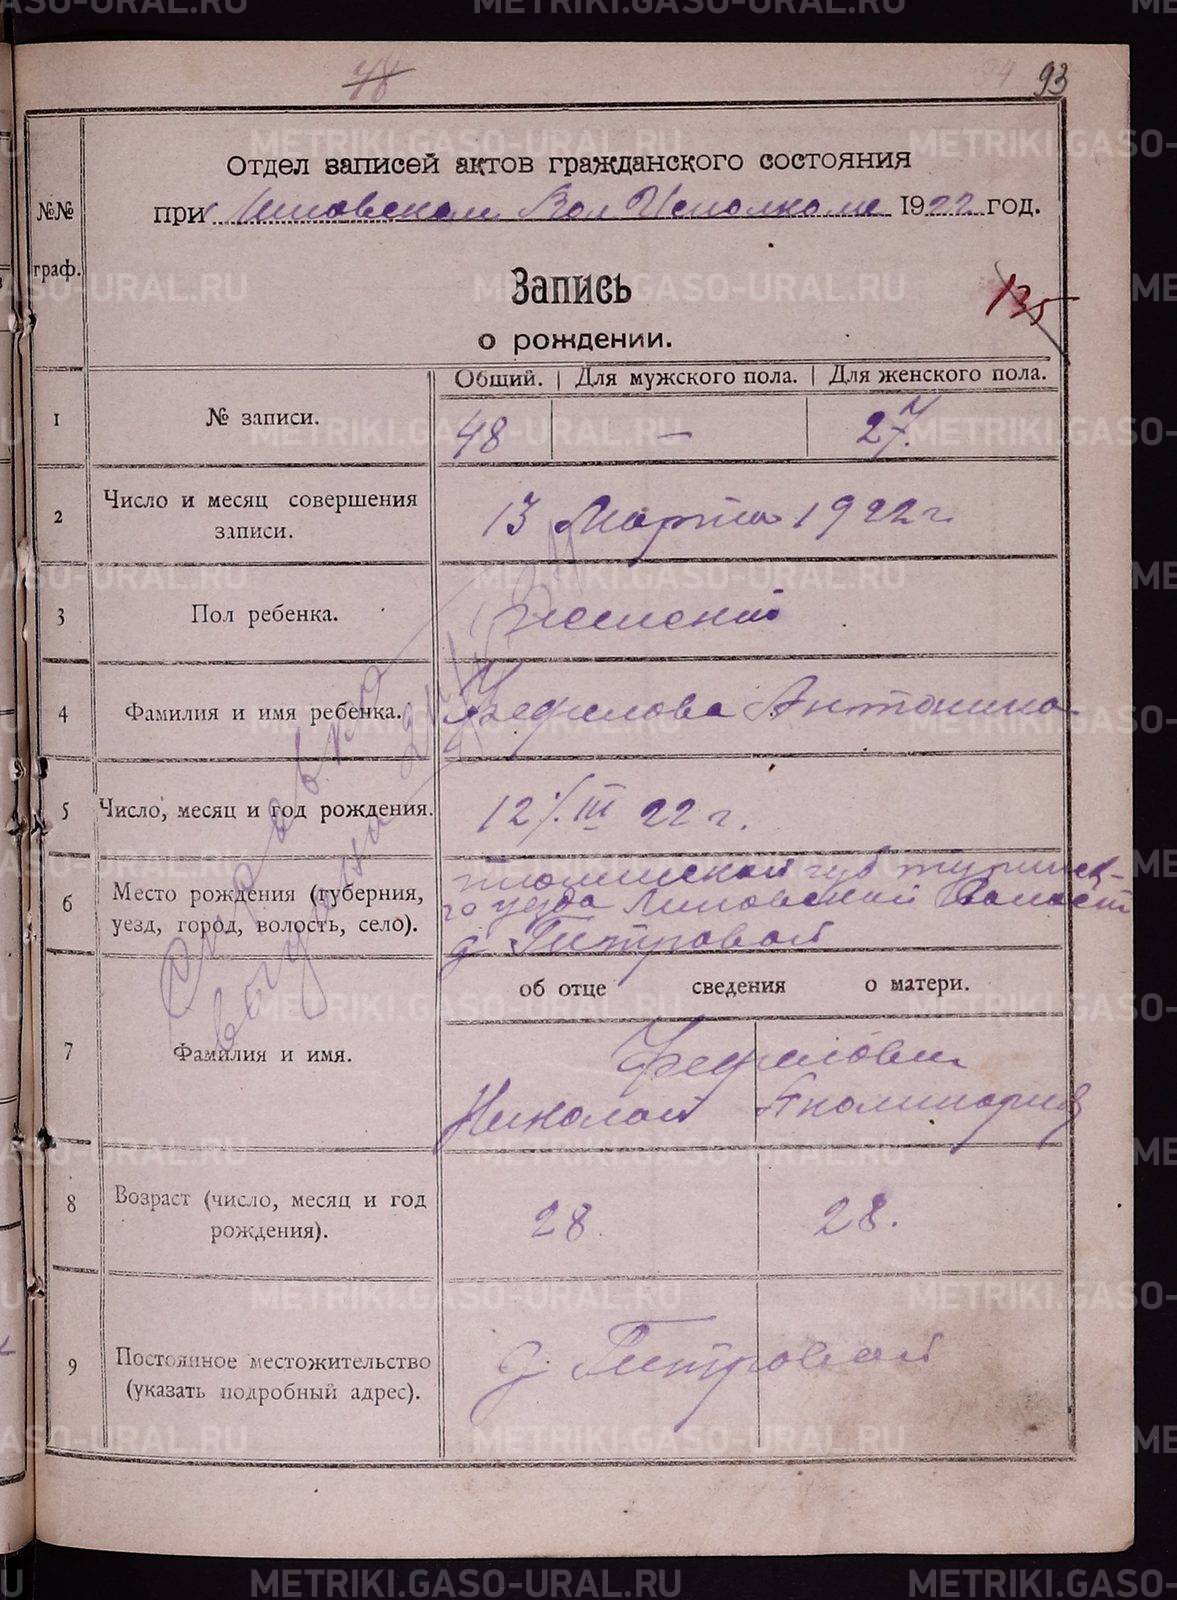 48
93
Отдел записей актов гражданского состояния
при Липовском Вол Исполкоме 1922 год.
№№
граф.
Запись
135
о рождении.
Общий. | Для мужского пола. | Для женского пола.
1 № записи. 48 — 27
2 Число и месяц совершения записи. 13 Марта 1922 г.
3 Пол ребенка. Женский
4 Фамилия и имя ребенка. Фефилова Антонина
5 Число, месяц и год рождения. 12/III 22 г.
6 Место рождения (губерния,
уезд, город, волость, село).
Тюменской губ Туринск-
го уезда Липовской Волост
д Питровой
об отце сведения о матери.
7 Фамилия и имя. Фефиловы
Николай Аполинария
8 Возраст (число, месяц и год
рождения). 28. 28.
9 Постоянное местожительство
(указать подробный адрес). д Питровой
Справка
METRIKI.GASO-URAL.RU